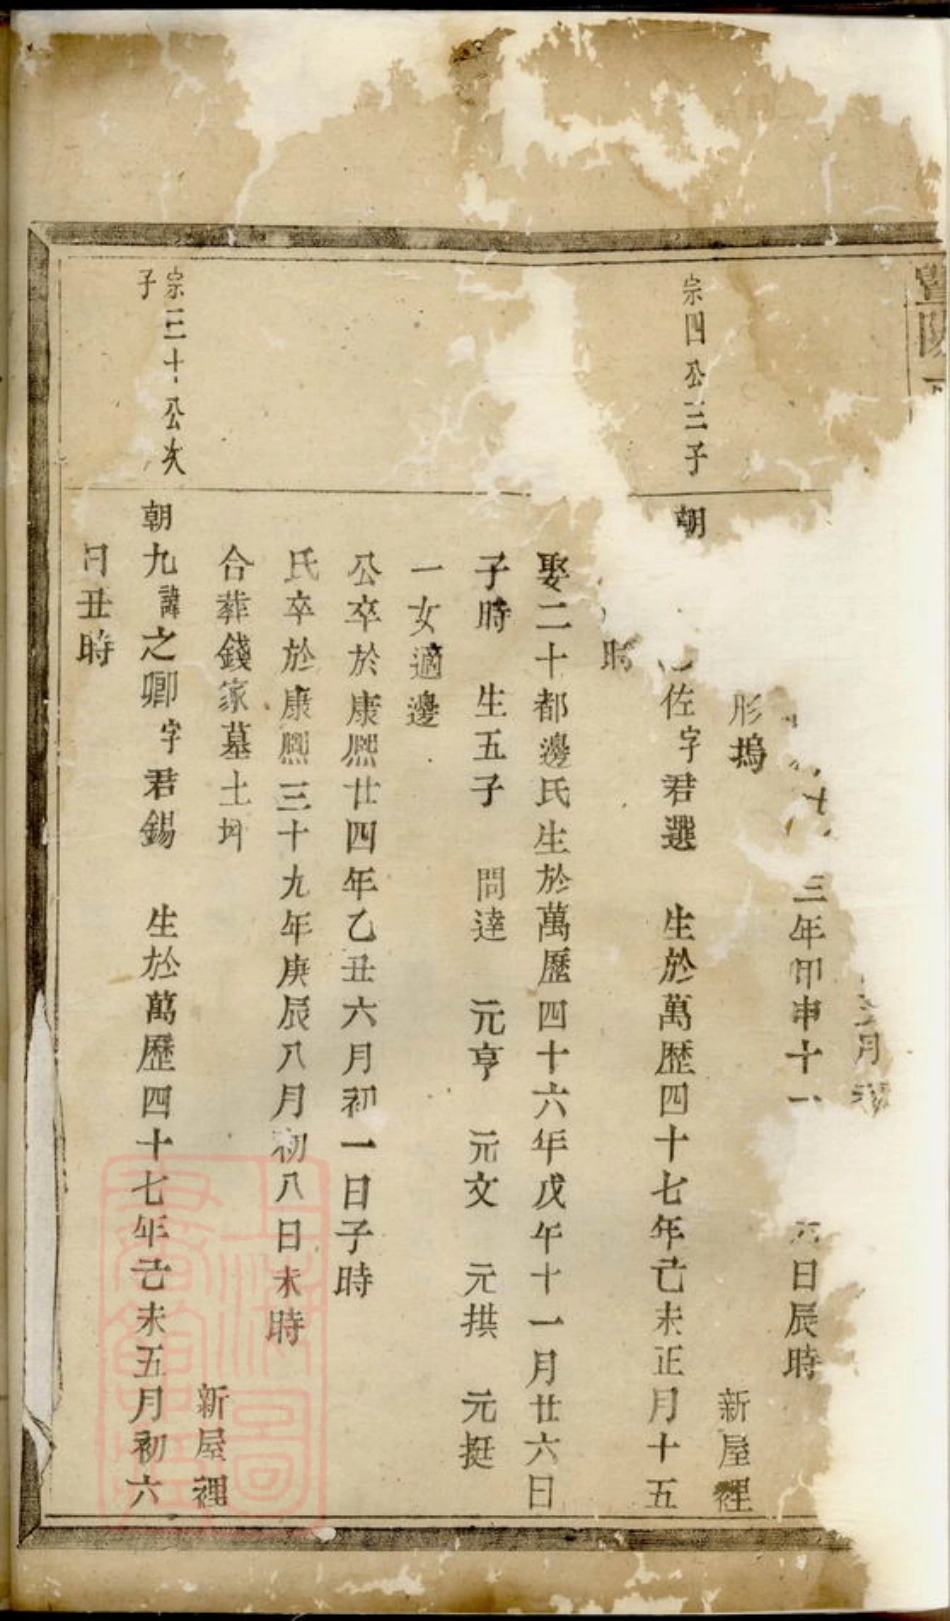 暨陽
月
三年甲申十一
日辰時
形塢
新屋裡
宗四公三子
朝
佐字君選 生於萬歷四十七年己未正月十五
時
娶二十都邊氏生於萬歷四十六年戊午十一月廿六日
子時 生五子 問達 元亨 元文 元拱 元挺
一女適邊
公卒於康熈廿四年乙丑六月初一日子時
氏卒於康熈三十九年庚辰八月初八日未時
合葬錢家墓土坷
新屋裡
宗三十公次
子
朝九諱之卿字君錫 生於萬歷四十七年己未五月初六
日丑時
上海圖
書館藏